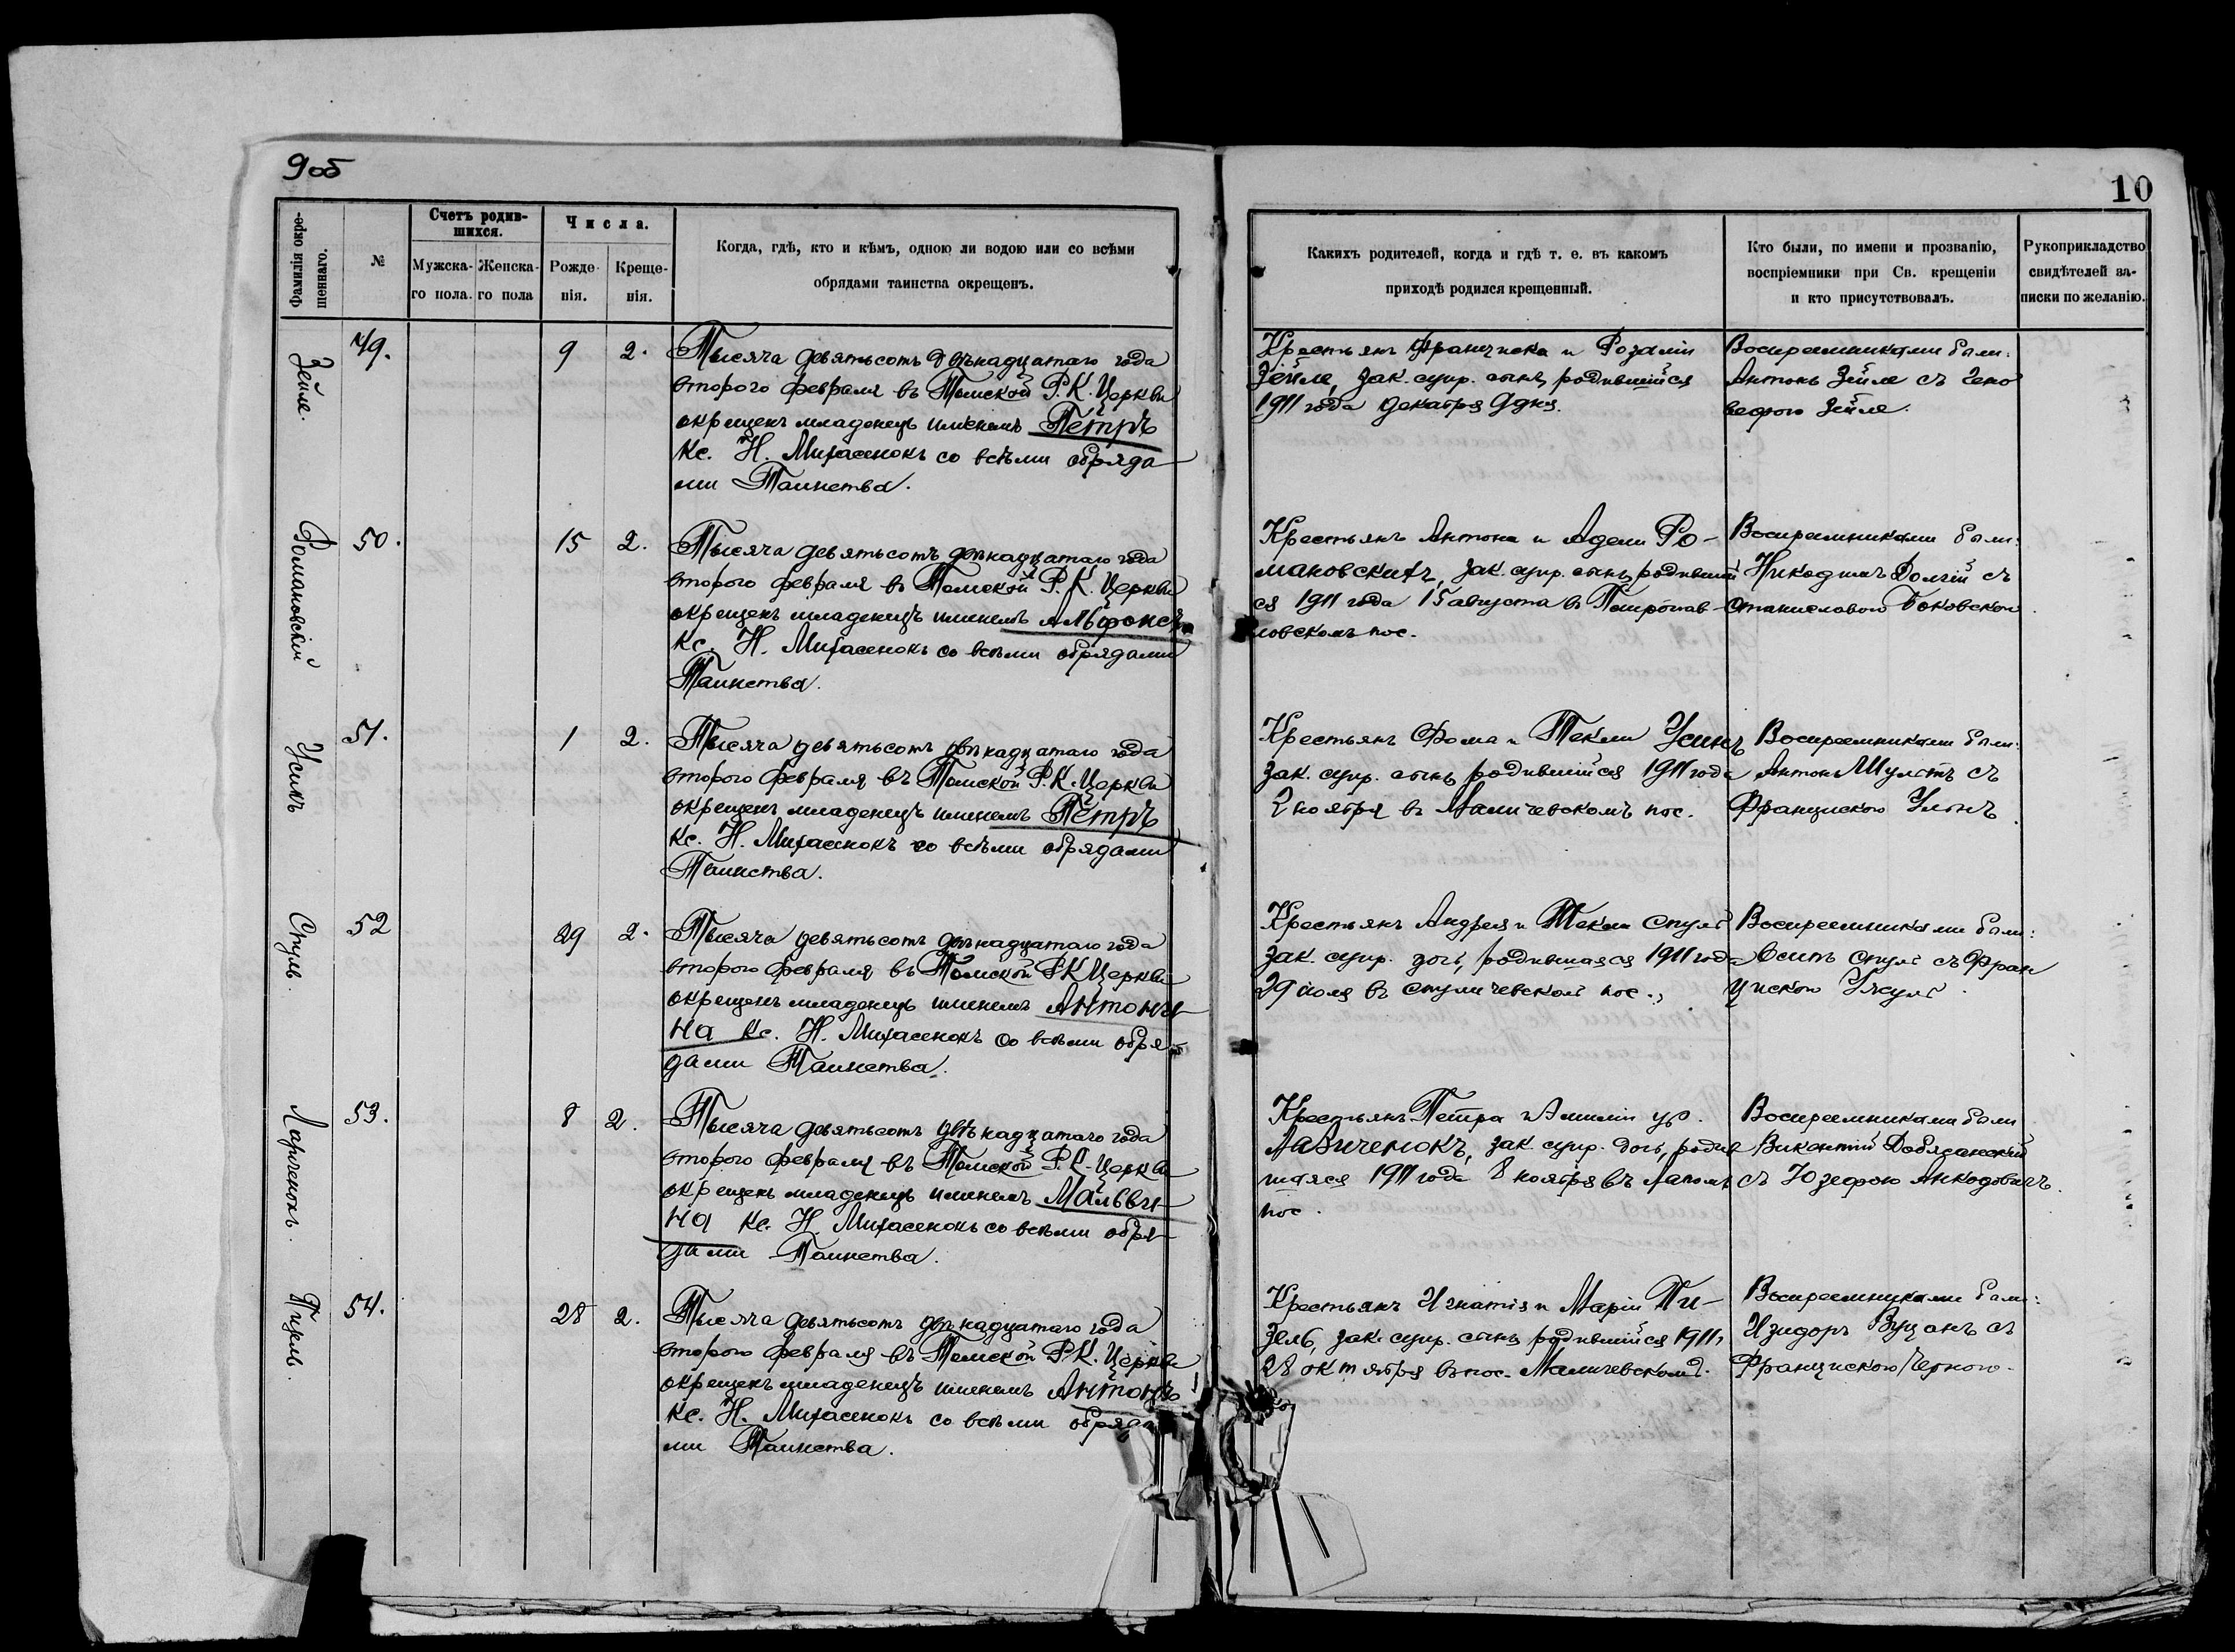 9об
10
Фамилія окре-
щеннаго.
№
Счетъ родив-
шихся.
Мужска-
го пола.
Женска-
го пола
Числа.
Рожде-
нія.
Креще-
нія.
Когда, гдѣ, кто и кѣмъ, одною ли водою или со всѣми
обрядами таинства окрещенъ.
Какихъ родителей, когда и гдѣ т. е. въ какомъ
приходѣ родился крещенный.
Кто были, по имени и прозванію,
воспріемники при Св. крещеніи
и кто присутствовалъ.
Рукоприкладство
свидѣтелей за-
писки по желанію.
Зейле.
49.
9
2.
Тысяча девятьсотъ двѣнадцатаго года
второго февраля въ Томской Р. К. Церкви
окрещенъ младенецъ именемъ Петръ
Кс. Н. Михасенокъ со всѣми обряда-
ми Таинства.
Крестьянъ Франциска и Розаліи
Зейле, зак. супр. сынъ, родившійся
1911 года декабря 9 дня.
Воспреемниками были:
Антонъ Зейле съ Гено
вефою Зейле.
Романовскій
50.
15
2.
Тысяча девятьсотъ двѣнадцатаго года
второго февраля въ Томской Р. К. Церкви
окрещенъ младенецъ именемъ Альфонсъ
Кс. Н. Михасенокъ со всѣми обрядами
Таинства.
Крестьянъ Антона и Адели Ро-
мановскихъ, зак. супр. сынъ, родивший
ся 1911 года 15 августа въ
ловскомъ пос.
Воспреемниками были:
Никодимъ Долгій съ
Станиславою
Усикъ
51.
1
2.
Тысяча девятьсотъ двѣнадцатаго года
второго февраля въ Томской Р. К. Церкви
окрещенъ младенецъ именемъ Петръ
Кс. Н. Михасенокъ со всѣми обрядами
Таинства.
Крестьянъ Фома и Текли Усикъ
зак. супр. сынъ, родившійся 1911 года
ноября въ Маличевскомъ пос.
Воспреемниками были:
Антонъ съ
Францискою
Стуль.
52
29
2.
Тысяча девятьсотъ двѣнадцатаго года
второго февраля въ Томской Р К Церкви
окрещенъ младенецъ именемъ Антони-
на Кс. Н. Михасенокъ со всѣми обря-
дами Таинства.
Крестьянъ Андрея и Текли Стуль
зак. супр. дочь, родившаяся 1911 года
29 іюля въ Стуличевскомъ пос.,
Воспреемниками были:
Осипъ Стуль съ Фран
цискою
Лавриченокъ.
53.
8
2.
Тысяча девятьсотъ двѣнадцатаго года
второго февраля въ Томской Р. К. Церкви
окрещенъ младенецъ именемъ Мальви-
на Кс. Н. Михасенокъ со всѣми обря-
дами Таинства.
Крестьянъ Петра и Амиліи ур.
зак. супр. дочь, родив
шаяся 1911 года 8 ноября въ
пос.
Воспреемниками были
Викентій съ
съ Юзефою
54.
28
2.
Тысяча девятьсотъ двѣнадцатаго года
второго февраля въ Томской Р К. Церкви
окрещенъ младенецъ именемъ Антонъ
Кс. Н. Михасенокъ со всѣми обряда-
ми Таинства.
Крестьянъ Игнатія и Маріи Пи-
зель, зак. супр. сынъ, родившійся 1911 г.
28 октября въ пос. Маличевскомъ.
Воспреемниками были:
Изидоръ съ
Францискою